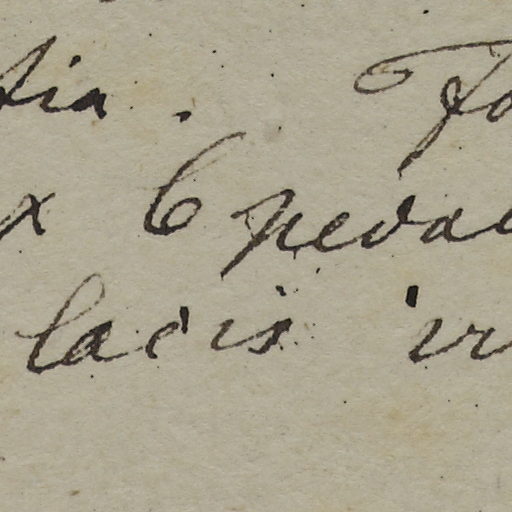 tia. Fo
x 6 peda
lacis in